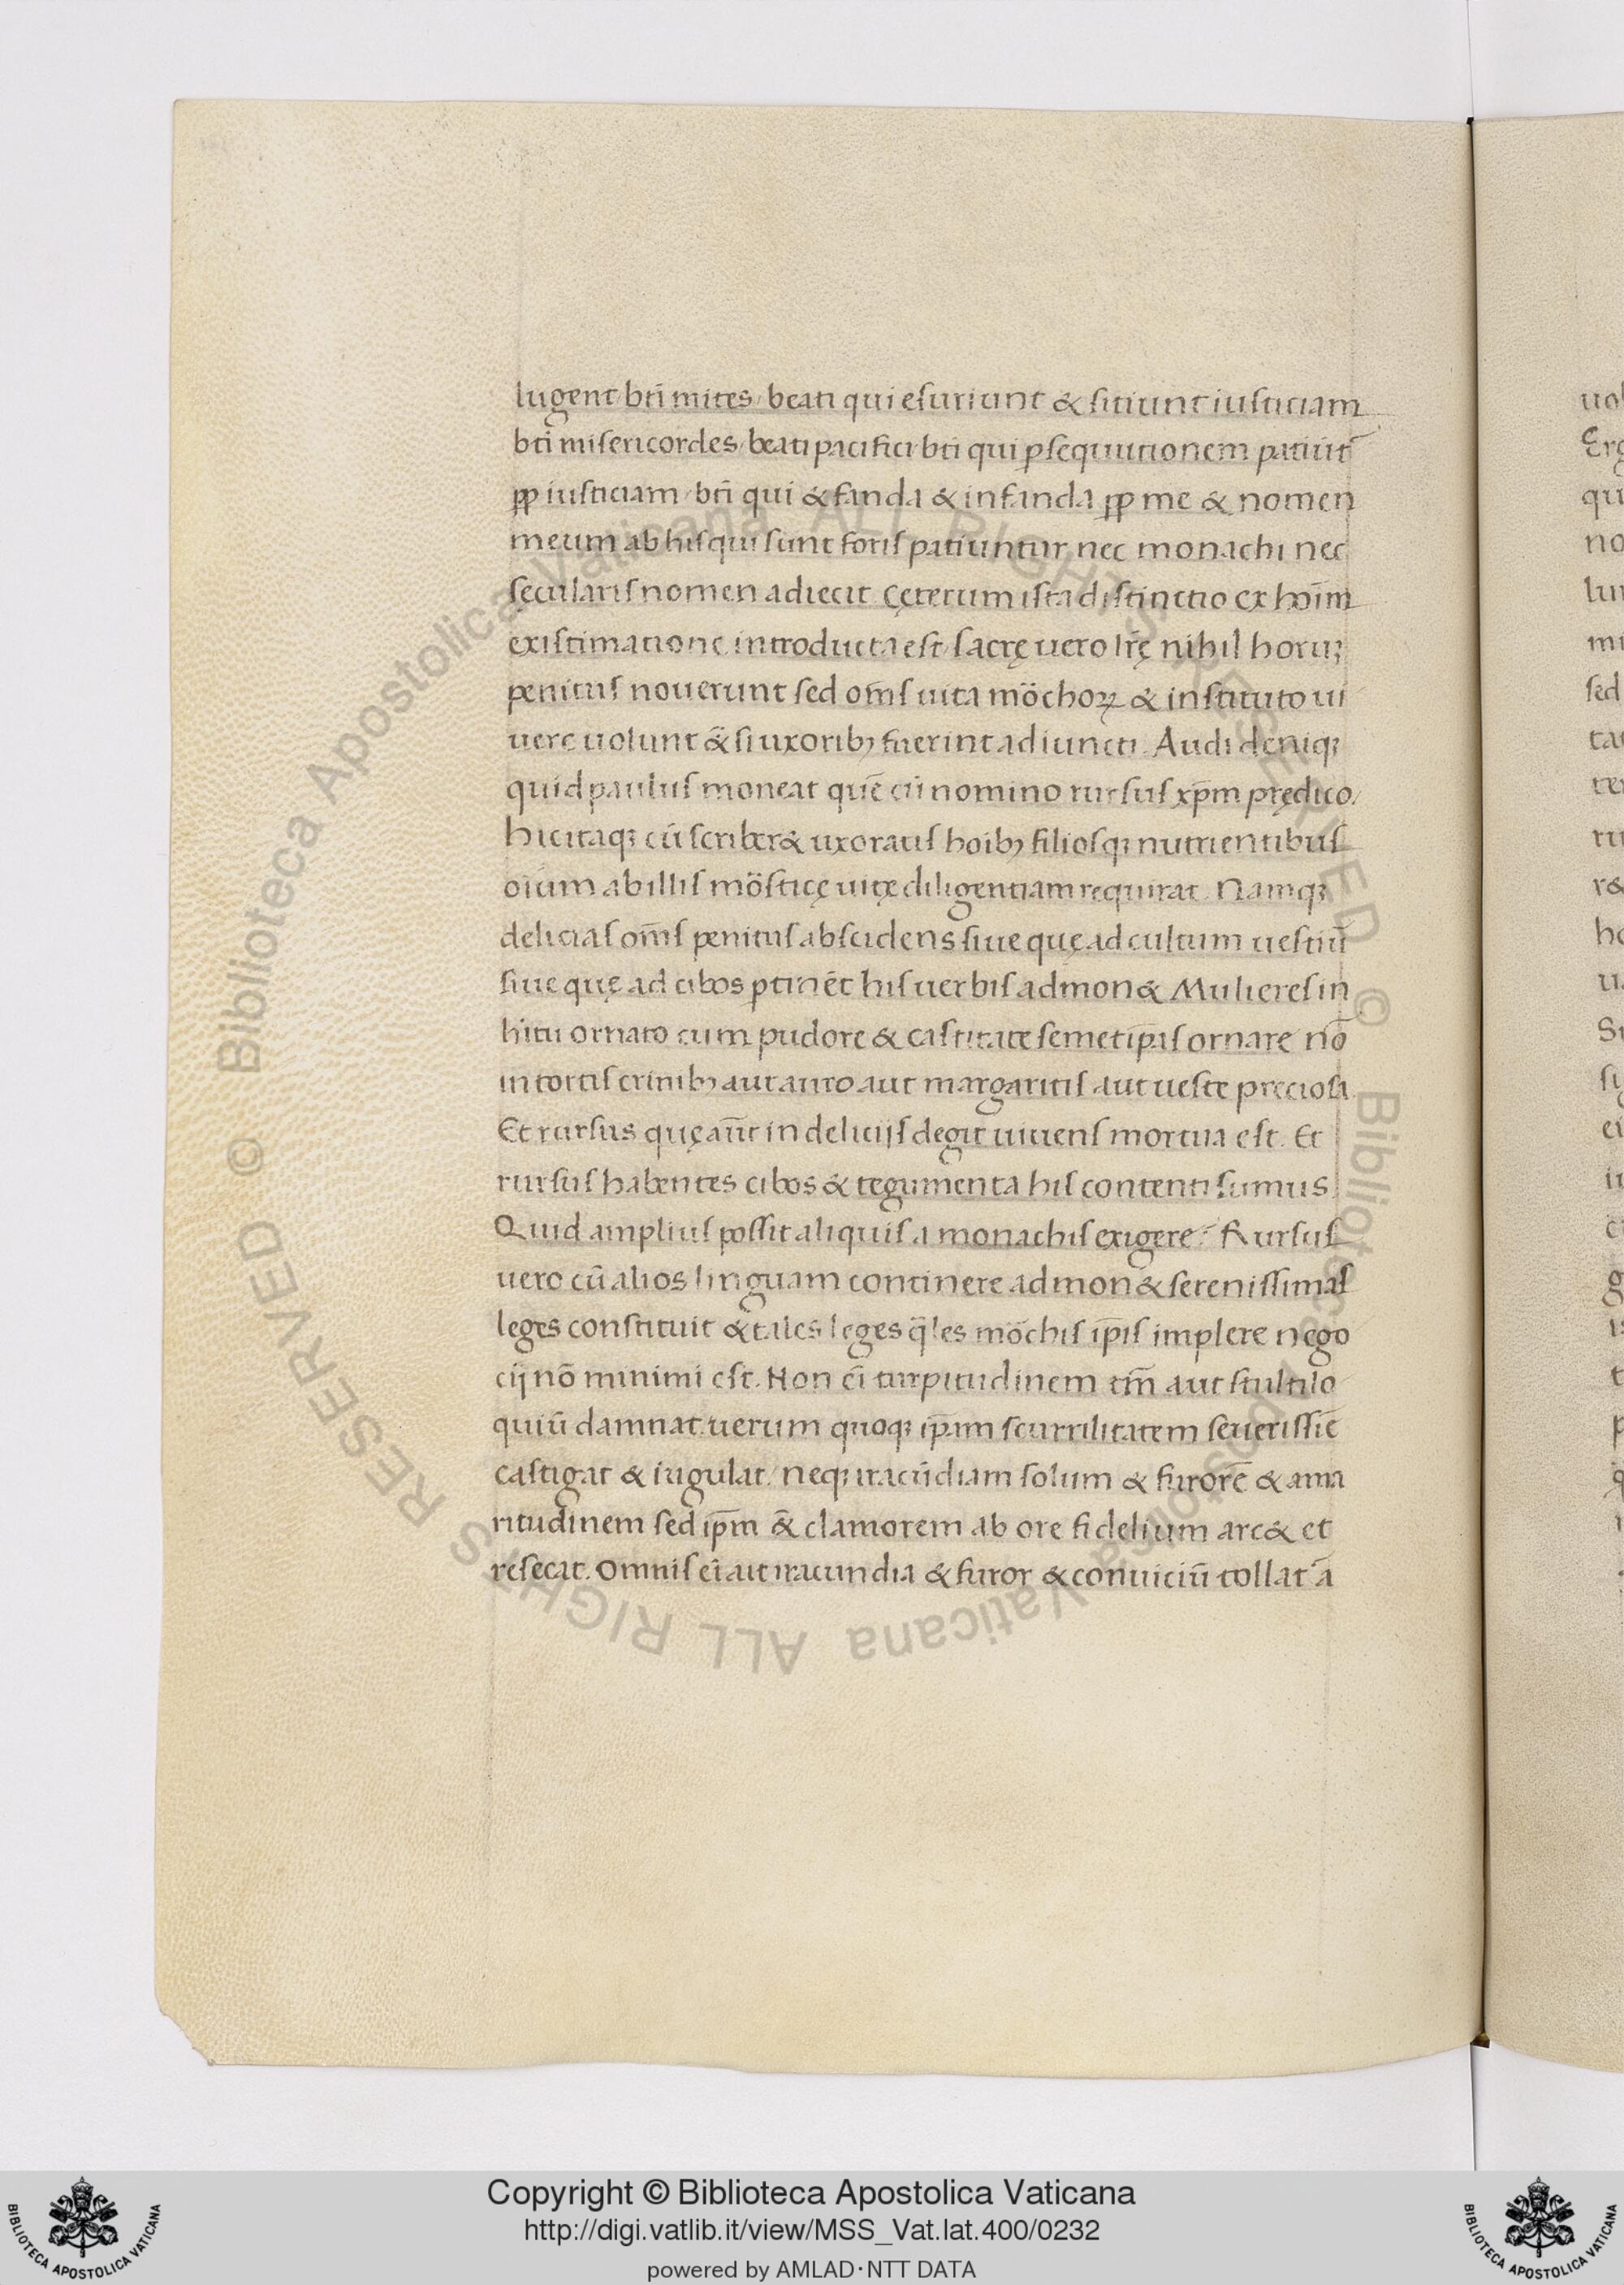 lugent / bti̅ mites / beati qui esuriunt & sitiunt iusticiam
bti̅ misericordes / beati pacifici / bti̅ qui ꝑsequutionem patiu̅t
ꝓp iusticiam / bti̅ qui & fanda & infanda ꝓp me & nomen
meum ab his qui sunt foris patiuntur nec monachi nec
sęcularis nomen adiecit. Cęterum ista distinctio ex hoi̅m
existimatione introducta est / sacrę uero lr̅ę nihil horuꝫ
penitus nouerunt sed om̅s uita mo̅choꝝ & instituto ui
uere uolunt & si uxoribꝫ fuerint adiuncti. Audi deniqꝫ
quid paulus moneat que̅ cu̅ nomino rursus xp̅m prędico /
hic itaqꝫ cu̅ scriber& uxoratis hoi̅bꝫ filiosqꝫ nutrientibus
oi̅um ab illis mo̅sticę uitę diligentiam requirat. Namqꝫ
delicias om̅s penitus abscidens siue quę ad cultum uestiu̅
siue quę ad cibos ꝑtine̅t his uerbis admon& Mulieres in
hitu ornato cum pudore & castitate semetip̅is ornare no̅
in tortis crinibꝫ aut auro aut margaritis aut ueste preciosa.
Et rursus quę au̅t in delicijs degit uiuens mortua est. Et
rursus habentes cibos & tegumenta his contenti sumus
Quid amplius possit aliquis a monachis exigere? Rursus
uero cu̅ alios linguam continere admon& serenissimas
leges constituit & tales leges q̅les mo̅chis ip̅is implere nego
cij no̅ minimi est. Non ei̅ turpitudinem tm̅ aut stultilo
quiu̅ damnat uerum quoqꝫ ip̅am scurrilitatem seuerissi̅e
castigat & iugulat / neqꝫ iracu̅diam solum & furore̅ & ama
ritudinem sed ip̅m & clamorem ab ore fidelium arc& et
resecat. Omnis ei̅ ait iracundia & furor & conuiciu̅ tollat a̅
uol
Erg
qu
no
lun
mi
sed
ta
ter
ru
r&
ho
ua
su
ei
g
© Biblioteca Apostolica Vaticana ALL RIGHTS RESERVED © Biblioteca Apostolica Vaticana ALL RIGHTS RESERVED
Copyright © Biblioteca Apostolica Vaticana
http://digi.vatlib.it/view/MSS_Vat.lat.400/0232
powered by AMLAD·NTT DATA
BIBLIOTECA APOSTOLICA VATICANA
BIBLIOTECA APOSTOLICA VATICANA